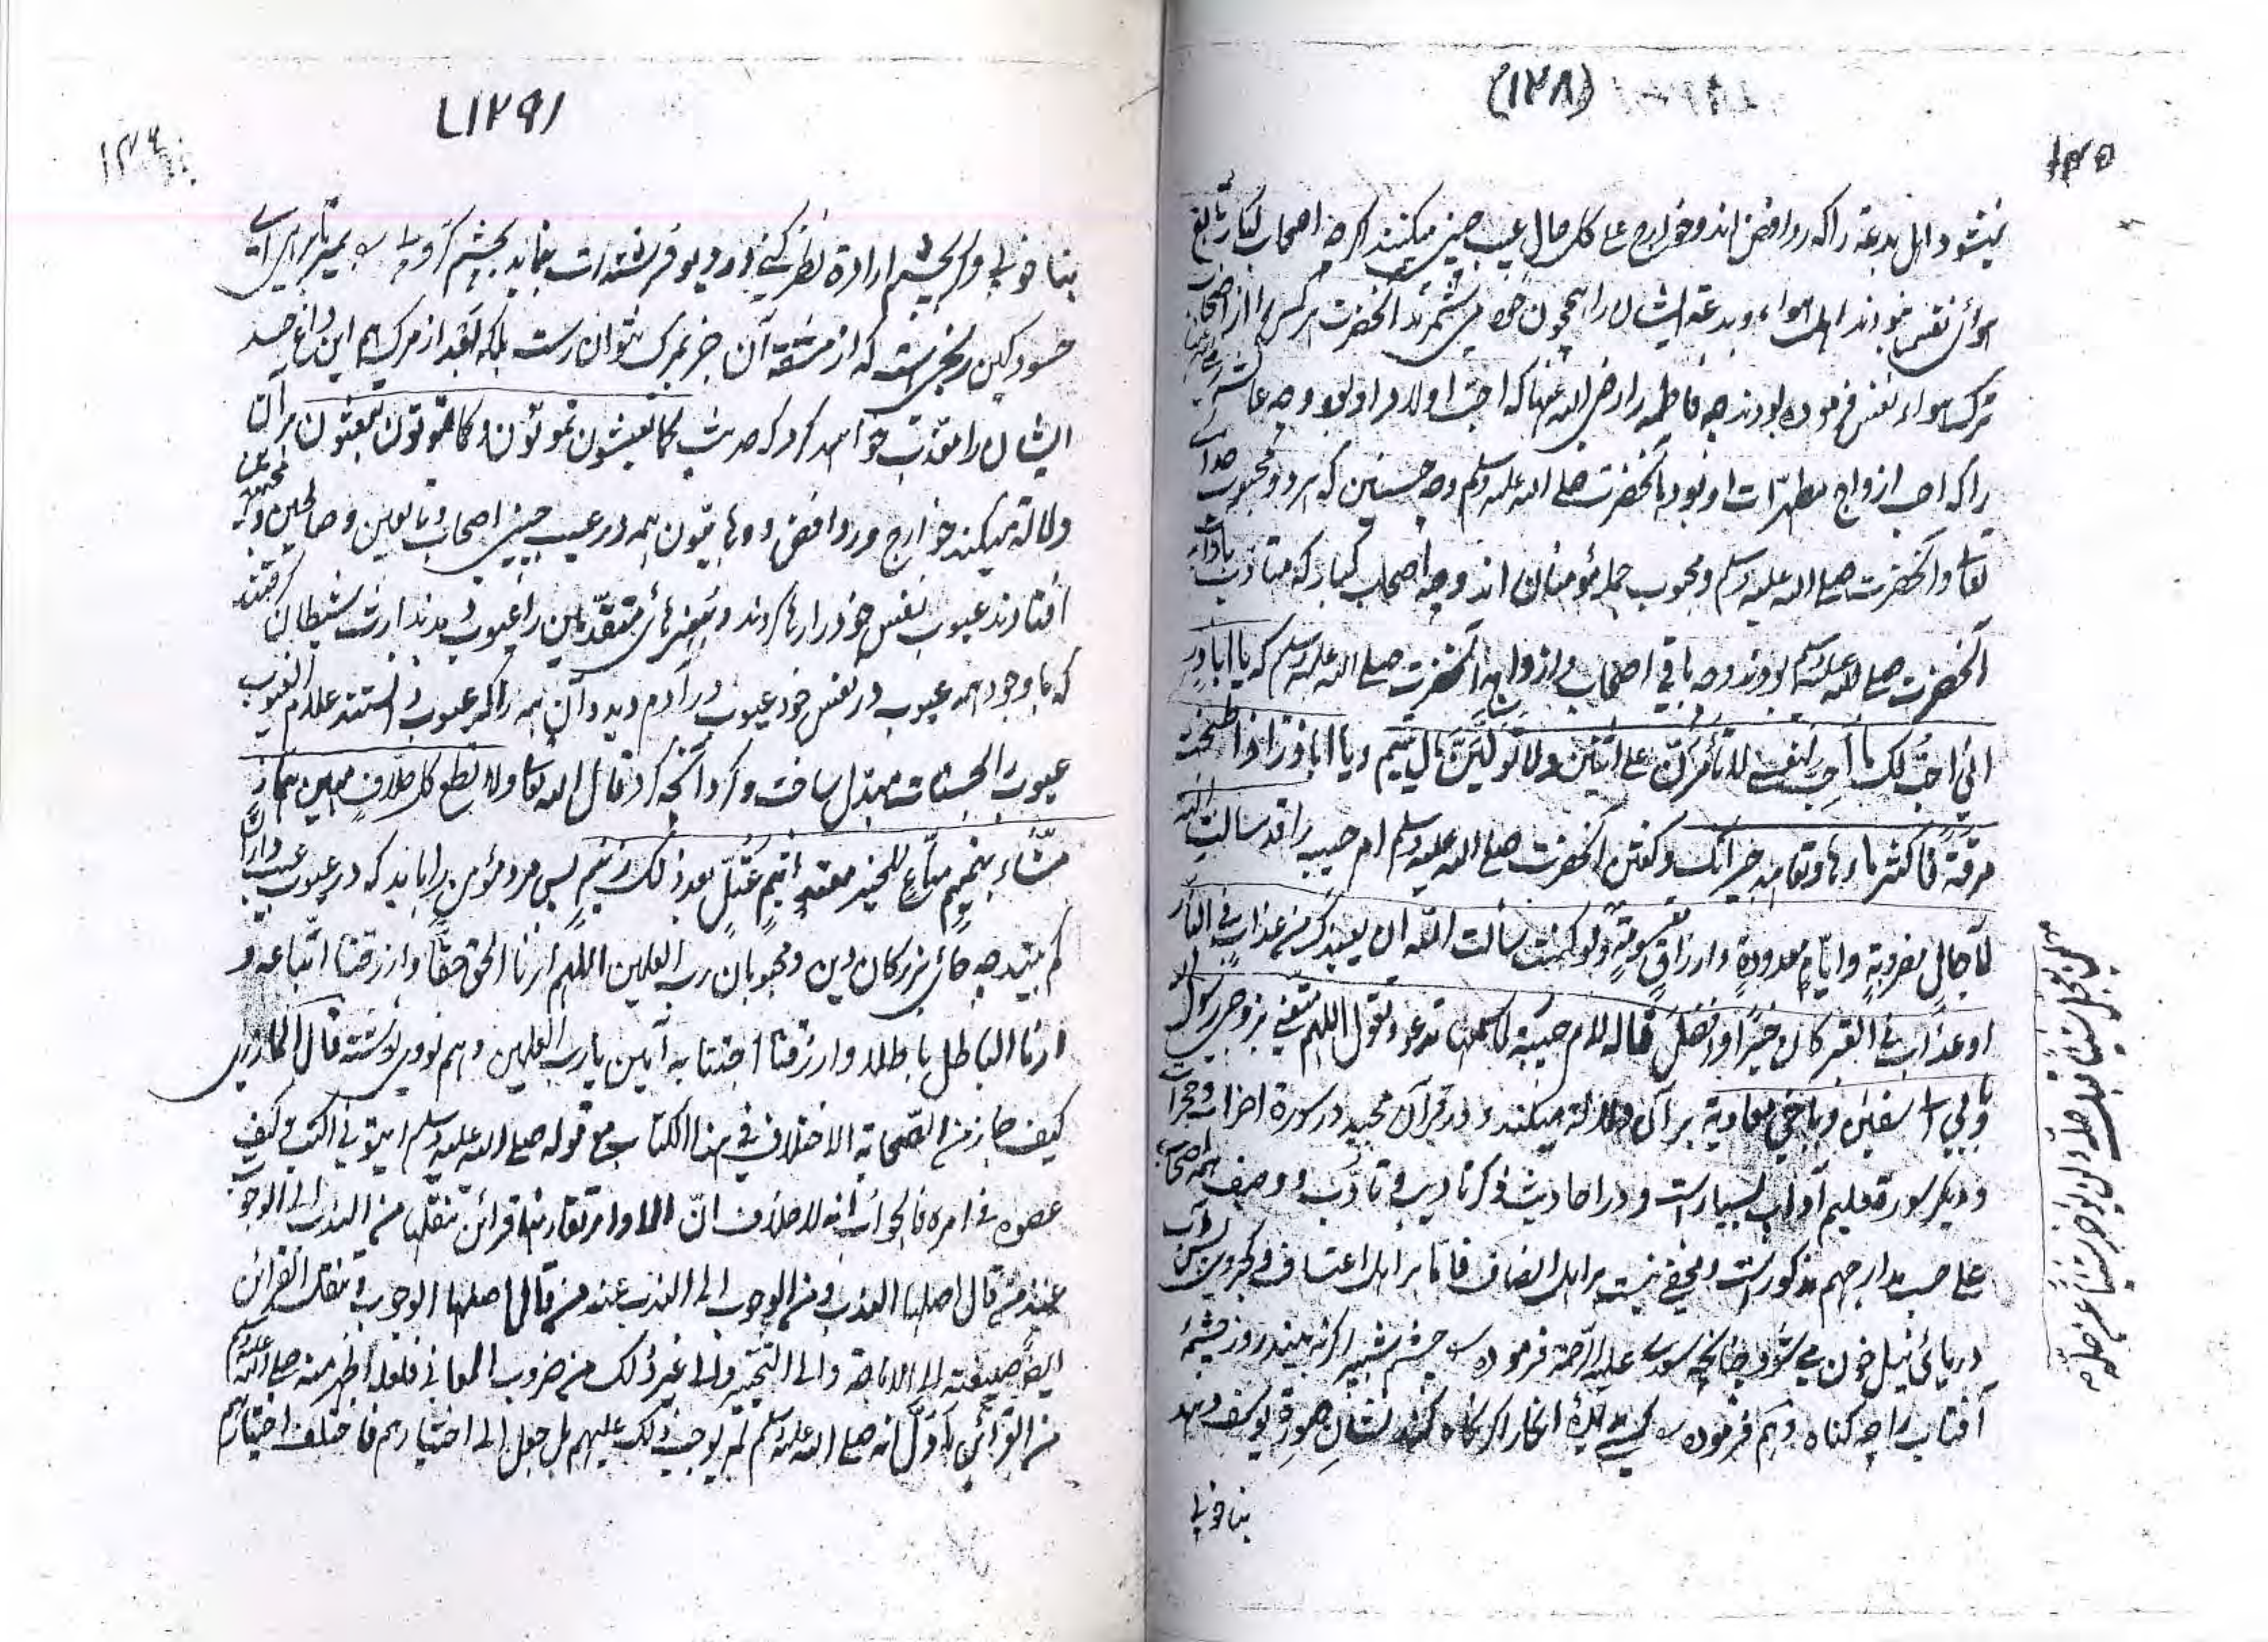 (١٢٨)
١٢٥
نمیشود اهل بدعة را که روافض اند و خوارج علی کل حال عیب چینی میکنند اگرچه اصحاب کبار تابع
هوای نفس نبودند اهل هواء و بدعة ایشان را همچون خود می شمرند آنحضرت هر کس را از اصحاب
ترک هواء نفس فرموده بودند چه فاطمه را رضی الله عنها که احب اولاد او بود و چه عائشه
را که احب ازواج مطهرات او بود بآنحضرت صلی الله علیه وسلم و چه حسنین که هر دو محبوب خدا
تعالی و آنحضرت صلی الله علیه وسلم و محبوب جمله مؤمنان اند و چه اصحاب کبار که متأدب بآداب
آنحضرت صلی الله علیه وسلم بودند و چه باقی اصحاب و ازواج آنحضرت صلی الله علیه وسلم که یا اباذر
انی احب لک ما احب لنفسی لا تأمرن علی اثنین ولا تولین مال یتیم و یا اباذر اذا طبخت
مرقة فاکثر ماءها وتعاهد جیرانک و گفتن آنحضرت صلی الله علیه وسلم ام حبیبه را قد سالت الله
لآجال مضروبة وایام معدودة وارزاق مقسومة ولو کنت سألت الله ان یعیذک من عذاب فی النار
او عذاب فی القبر کان خیرا وافضل قاله لام حبیبة لما سمعها تدعو وتقول اللهم متعنی بزوجی رسول الله
وبابی ابی سفین وباخی معاویة بر آن دلالة میکند و در قرآن مجید در سورة احزاب و حجرات
و دیگر سورة تعلیم آداب بسیارست و در احادیث ذکر تادیب و تأدب و وصف همه اصحاب
علی حسب مدارجهم مذکورست و مخفی نیست بر اهل انصاف فاما بر اهل اعتساف و کجروی پس آب
دریائی نیل خون می شود چنانچه سعدی علیه الرحمة فرموده س چشم شبپر اگر نه بیند روز چشمهٔ
آفتاب را چه گناه و هم فرموده س کسی بدیدهٔ انکار اگر نگاه کند نشان صورة یوسف دهد
بنا خوبی
(١٢٩)
١٢٦
بنا خوبی و گر بچشم ارادة نظر کنی در دیو فرشته ات بنماید بچشم کروبی س بمیر تا برهی ای
حسود کین رنجیست که از مشقة آن جز بمرگ نتوان رست بلکه بعد از مرگ هم این داغ حسد
ایشان را معذب خواهد کرد که حدیث کما تعیشون تموتون وکما تموتون تبعثون بر آن
دلالة میکند خوارج و روافض و وهابیون همه در عیب چینی اصحاب و تابعین و صالحین و مجتهدین
افتادند عیوب نفس خود را رها کردند و هنرهای متقدمین را عیوب دیدند ارث شیطان گرفتند
که با وجود همه عیوب در نفس خود عیوب در آدم دید و آن همه را که عیوب دانستند علام الغیوب
عیوب را بحسنات مبدل ساخت و کرد آنچه کرد قال الله تعالی ولا تطع کل حلاف مهین هماز
مشاء بنمیم مناع للخیر معتد اثیم عتل بعد ذلک زنیم پس مرد مؤمن را باید که در عیوب عیب داران
کم بیند چه جای بزرگان دین و محبوبان رب العلمین اللهم ارنا الحق حقا وارزقنا اتباعه و
ارنا الباطل باطلا وارزقنا اجتنابه آمین یا رب العلمین و هم نووی نوشته قال المازری
کیف جاز من الصحابة الاختلاف فی هذا الکتاب مع قوله صلی الله علیه وسلم ایتونی اکتب وکیف
عصوه فی امره فالجواب انه لا خلاف ان الاوامر تقارنها قرائن تنقلها من الندب الی الوجوب
عند من قال اصلها الندب ومن الوجوب الی الندب عند من قال اصلها الوجوب وتنقل القرائن
ایضا صیغته الی الاباحة والی التخییر والی غیر ذلک من ضروب المعانی فلعله ظهر منه صلی الله علیه وسلم
من القرائن ما دل انه صلی الله علیه وسلم لم یوجب ذلک علیهم بل جعل الی اختیارهم فاختلف اختیارهم